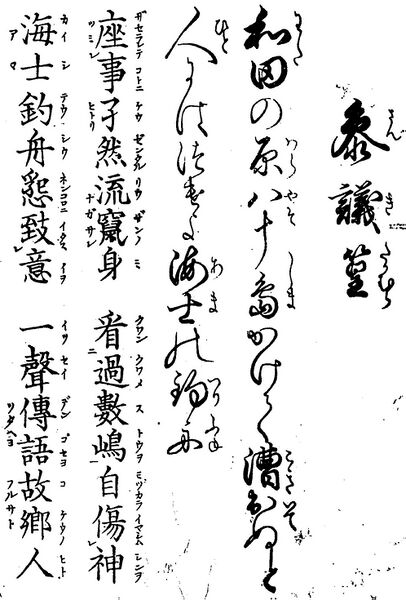 参議篁
和田の原八十嶋かけて漕出ぬと
人にはつげよ海士の釣舟
座事孑然流竄身 看過數嶋自傷神
海士釣舟懇致意 一聲傳語故郷人